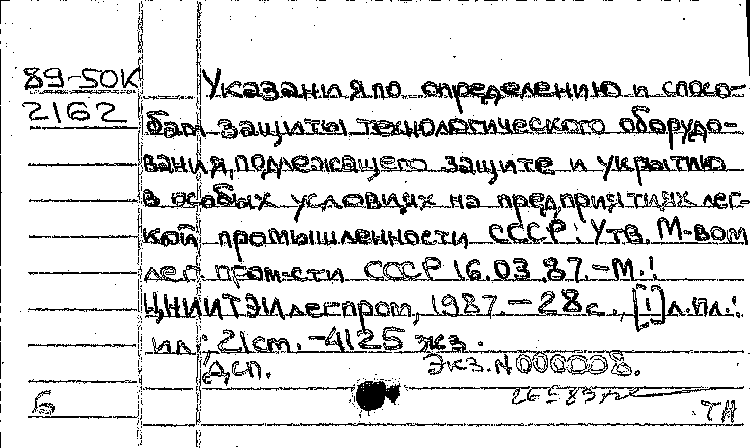 89-50К Указания по определению и спосо-
2162 бам защиты технологического оборудо-
вания, подлежащего защите и укрытию
в особых условиях на предприятиях лег-
кой промышленности СССР: Утв. М-вом
лег. пром-сти СССР 16.03.87.-М.:
ЦНИИТЭИлегпром, 1987.-28с., [1]л.ил.:
ил; 21см. -4125 экз.
Дсп. Экз.N000008.
6 ТН